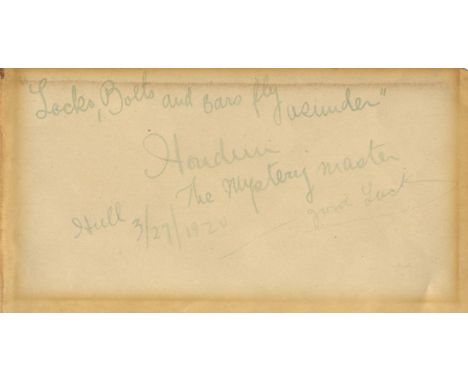 "Locks, Bolts and bars fly asunder"
Houdini
The Mystery Master
Hull 3/27/1920
Good Luck